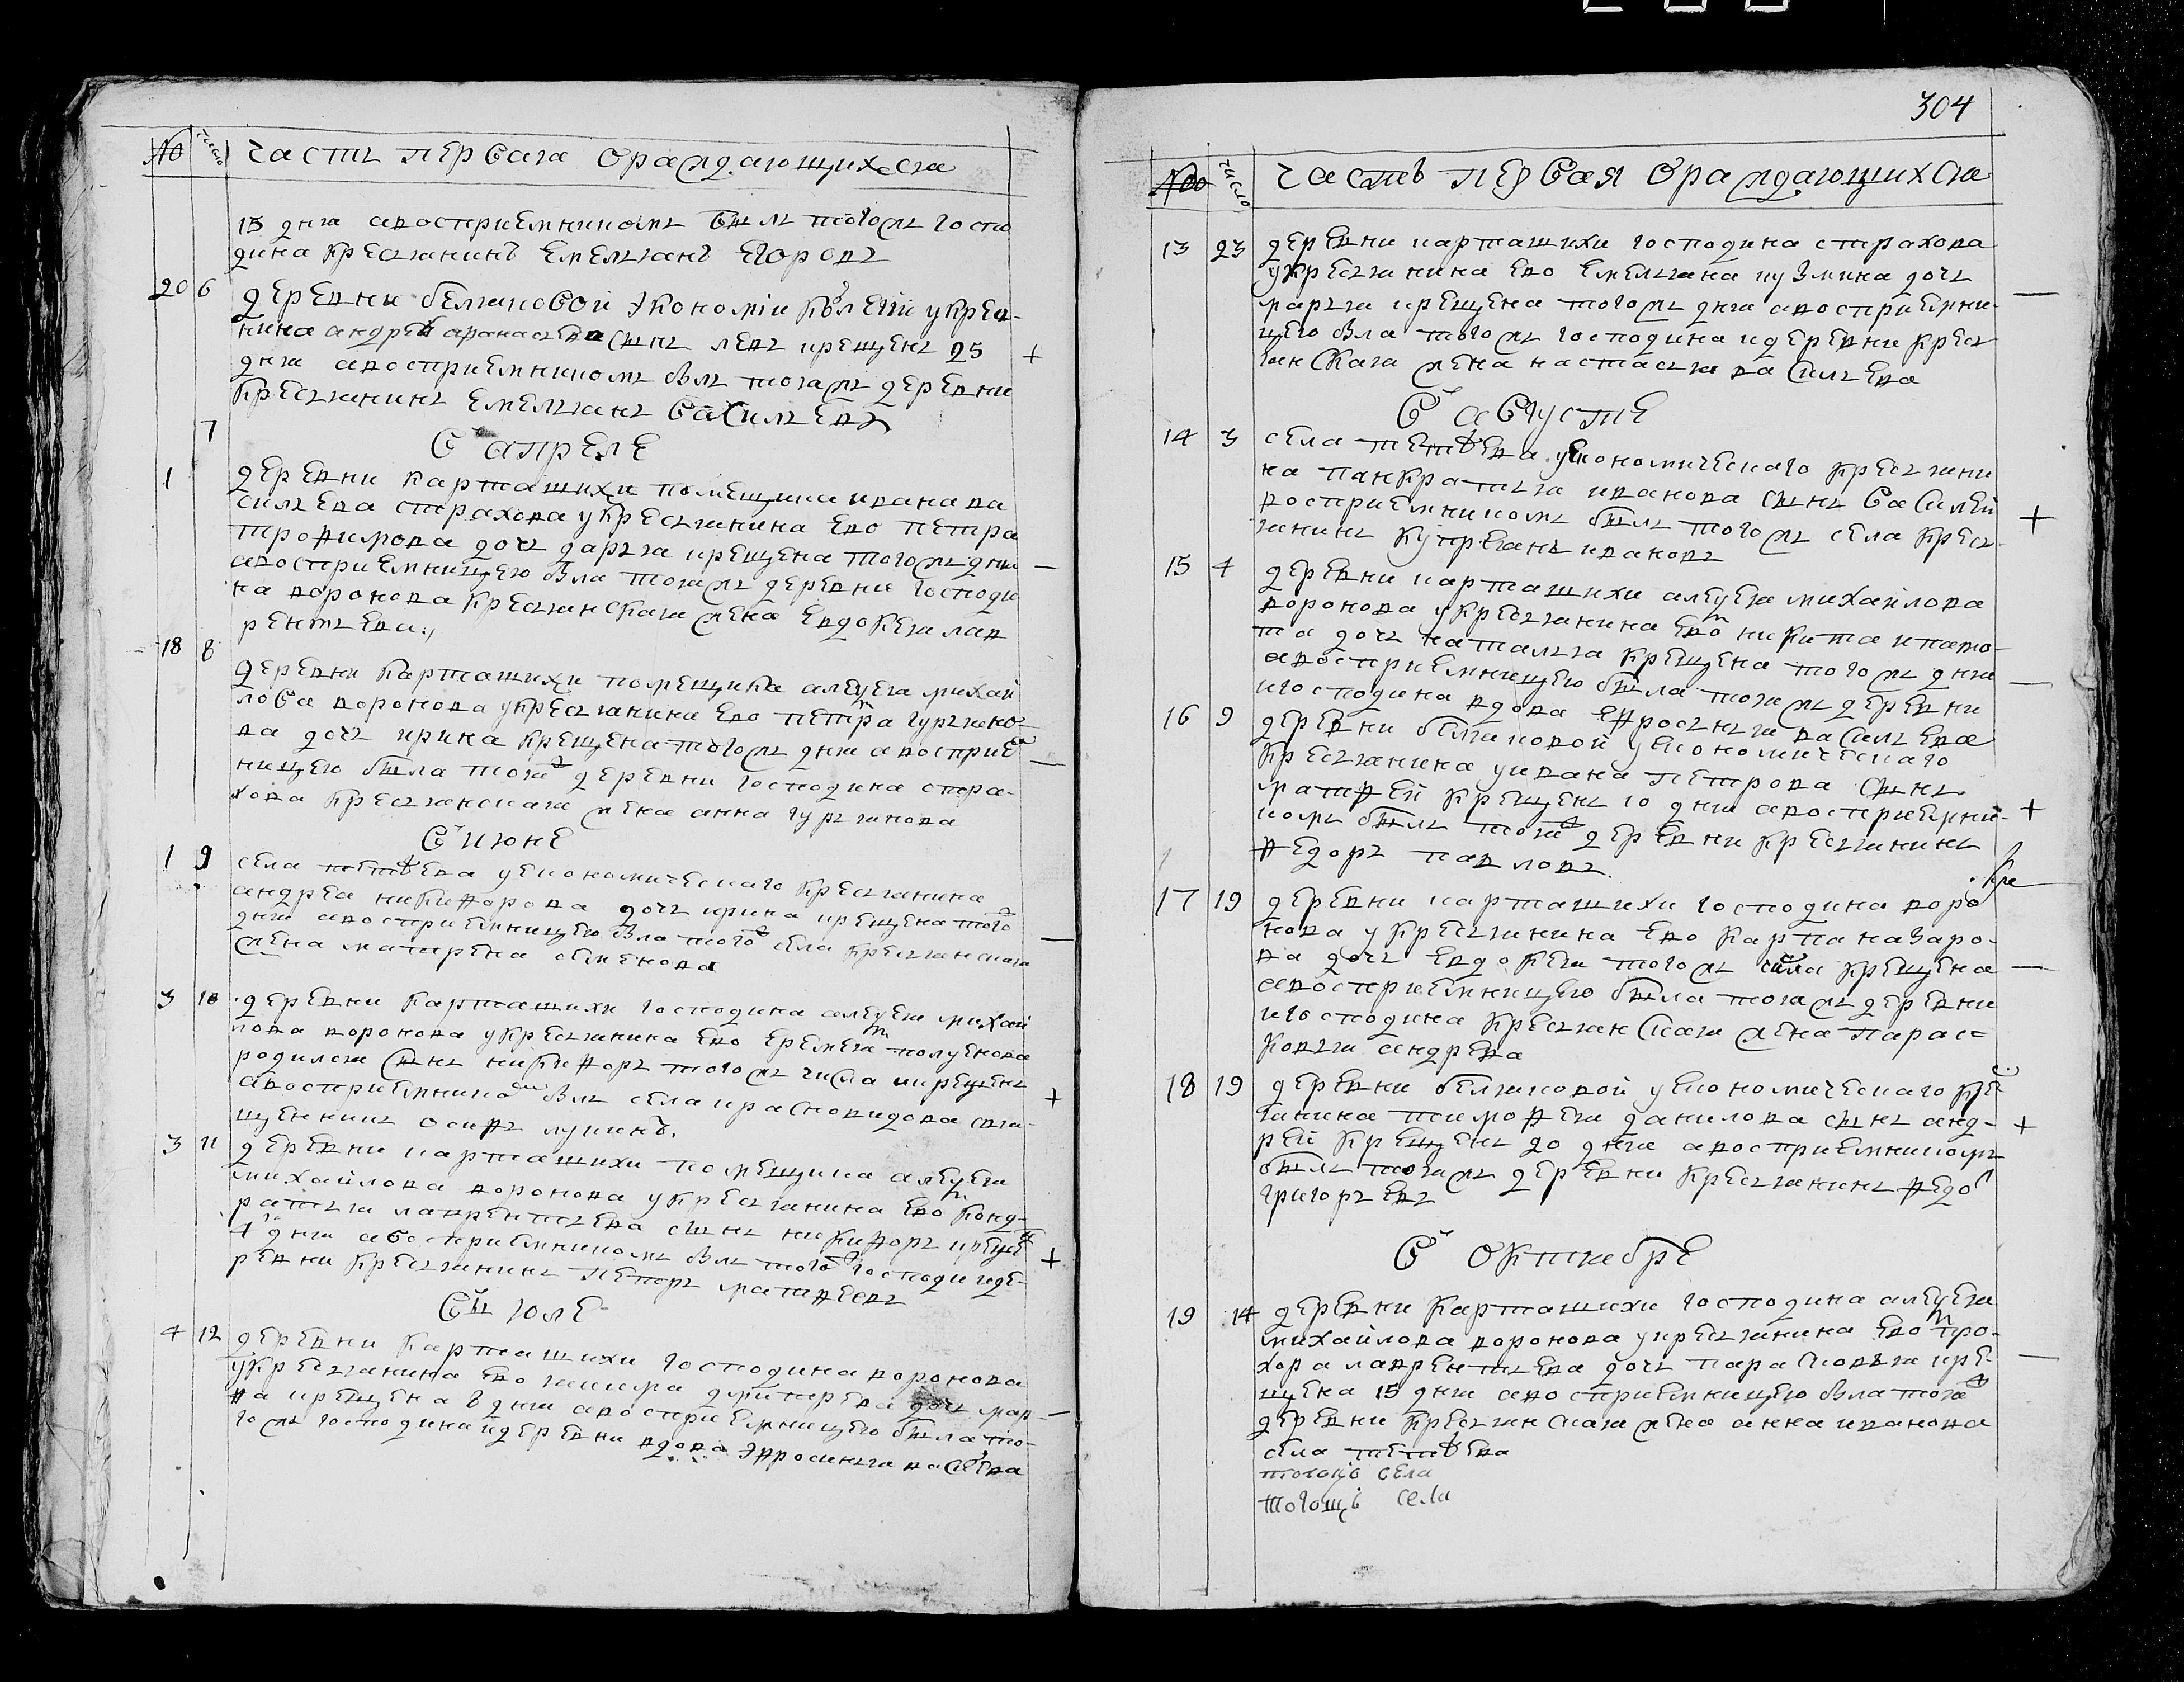 No число часть первая ораждающихся
15 дня авосприемникомъ былъ тогожъ госпо
дина крестьянинъ Емельянъ Егоровъ
20 6 деревни беляковой экономіи колегіи укрестья-
нина андрея афанасьева сынъ левъ крещенъ 25 +
дня авосприемникомъ былъ тояжъ деревни
крестьянинъ Емельянъ васильевъ
7
въ апреле
1 деревни карташихи помещика ивана ва
сильева страхова укрестьянина ево петра
трофимова дочь дарья крещена тогожъ дня —
авосприемницею была тояжъ деревни господи
на воронова крестьянская жена Евдокея лав
рентьева
18 8
деревни карташихи помещика алеѯея михай
лова воронова укрестьянина ево петра гурьяно-
ва дочь ирина крещена тогожъ дня авосприем
ницею была тояжъ деревни господина стра- —
хова крестьянская жена анна гурьянова
въ июне
1 9 села тетѣева уекономическаго крестьянина
андрея никифорова дочь ирина крещена того
дня авосприемницею была тогожъ села крестьянская —
жена матрена семенова
3 10 деревни карташихи господина алеѯея михай
лова воронова укрестьянина ево еремея полуенова
родился сынъ никифоръ тогожъ числа икрещенъ
авосприемникомъ былъ села красновидова свя- +
щенникъ осипъ лукинъ.
3 11 деревни карташихи помещика алеѯея
михайлова воронова укрестьянина ево конд-
ратья лаврентьева сынъ никифоръ крещен
4 дня авосприемникомъ былъ тогожъ господи идe- +
ревни крестьянинъ петръ матфеевъ
въ июле
4 12 деревни карташихи господина воронова
укрестьянина ево якима дмитрева дочь мар-
фа крещена 8 дня авосприемницею была то- —
гожъ господина идеревни вдова Эфросинья васильева
304
No число часть первая ораждающихся
13 23 деревни карташихи господина страхова
укрестьянина ево Емельяна кузмина дочь
марья крещена тогожъ дня авосприемни- —
цею была тогожъ господина идеревни кресть
янская жена настасья васильева
въ августе
14 3 села тетѣева уекономическаго крестьяни
на панкратья иванова сынъ василей
восприемникомъ былъ тогожъ села кресть- +
янинъ купреянъ ивановъ
15 4 деревни карташихи алеѯея михайлова
воронова укрестьянина ево никита ипато-
та дочь наталья крещена тогожъ дня
авосприемницею была тояжъ деревни —
игосподина вдова ефросинья васильева
16 9 деревни беляковой уекономическаго
крестьянина уивана петрова сынъ
матфей крещенъ 10 дня авосприемни- +
комъ былъ тояжъ деревни крестьянинъ
федоръ павловъ
17 19 деревни карташихи господина воро
нова укрестьянина ево карпа назаро-
ва дочь евдокея тогожъ числа крещена —
авосприемницею была тояжъ деревни
игосподина крестьянская жена парас
ковья андрева
18 19 деревни беляковой уекономическаго крес
тьянина тимофея данилова сынъ анд- +
рей крещенъ 20 дня авосприемникомъ
былъ тояжъ деревни крестьянинъ федо
григорьевъ
въ октябре
19 14 деревни карташихи господина алеѯея
михайлова воронова укрестьянина ево про-
хора лаврентьева дочь парасковья кре- —
щена 15 дня авосприемницею была тояжъ
деревни крестьянская жена анна иванова
села тетѣева
тогожъ села
тогощъ села